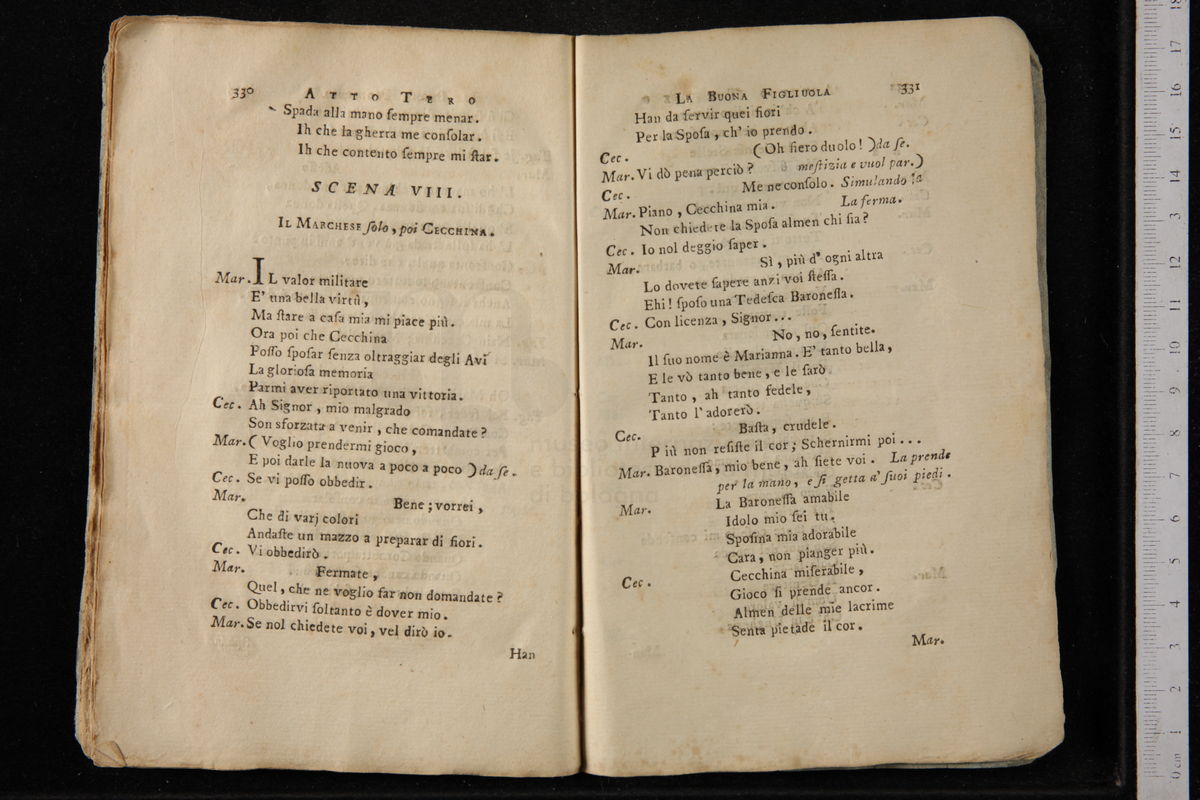 330 ATTO TERO
Spada alla mano ſempre menar.
Ih che la gherra me conſolar.
Ih che contento ſempre mi ſtar.
SCENA VIII.
IL MARCHESE ſolo, poi CECCHINA.
Mar. IL valor militare
E' una bella virtù,
Ma ſtare a caſa mia mi piace più.
Ora poi che Cecchina
Poſſo ſpoſar ſenza oltraggiar degli Avi
La glorioſa memoria
Parmi aver riportato una vittoria.
Cec. Ah Signor, mio malgrado
Son sforzata a venir, che comandate?
Mar. ( Voglio prendermi gioco,
E poi darle la nuova a poco a poco ) da ſe.
Cec. Se vi poſſo obbedir.
Mar. Bene; vorrei,
Che di varj colori
Andaſte un mazzo a preparar di fiori.
Cec. Vi obbedirò.
Mar. Fermate,
Quel, che ne voglio far non domandate?
Cec. Obbedirvi ſoltanto è dover mio.
Mar. Se nol chiedete voi, vel dirò io.
Han
LA BUONA FIGLIUOLA 331
Han da ſervir quei fiori
Per la Spoſa, ch' io prendo.
Cec. ( Oh fiero duolo! ) da ſe.
Mar. Vi dò pena perciò? meſtizia e vuol par.)
Cec. Me ne conſolo. Simulando la
Mar. Piano, Cecchina mia. La ferma.
Non chiedete la Spoſa almen chi ſia?
Cec. Io nol deggio ſaper.
Mar. Sì, più d' ogni altra
Lo dovete ſapere anzi voi ſteſſa.
Ehi! ſpoſo una Tedeſca Baroneſſa.
Cec. Con licenza, Signor...
Mar. No, no, ſentite.
Il ſuo nome è Marianna. E' tanto bella,
E le vò tanto bene, e le ſarò
Tanto, ah tanto fedele,
Tanto l' adorerò.
Cec. Baſta, crudele.
Più non reſiſte il cor; Schernirmi poi...
Mar. Baroneſſa, mio bene, ah ſiete voi. La prende
per la mano, e ſi getta a' ſuoi piedi.
Mar. La Baroneſſa amabile
Idolo mio ſei tu.
Spoſina mia adorabile
Cara, non pianger più.
Cec. Cecchina miſerabile,
Gioco ſi prende ancor.
Almen delle mie lacrime
Senta pietade il cor.
Mar.